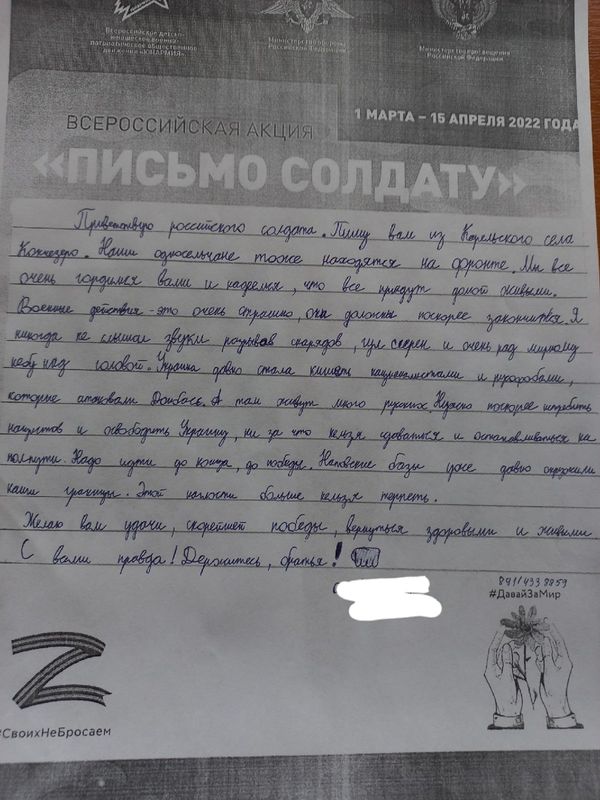 Всероссийское детско-
юношеское военно-
патриотическое общественное
движение «ЮНАРМИЯ»
Министерство обороны
Российской Федерации
Министерство просвещения
Российской Федерации
1 МАРТА – 15 АПРЕЛЯ 2022 ГОДА
ВСЕРОССИЙСКАЯ АКЦИЯ
«ПИСЬМО СОЛДАТУ»
Приветствую российского солдата. Пишу вам из Карельского села
Коккозеро. Наши односельчане тоже находятся на фронте. Мы все
очень гордимся вами и надеемся, что все придут домой живыми.
Военные действия - это очень страшно, они должны поскорее закончиться. Я
никогда не слышал звуки разрывов снарядов, гул сирен и очень рад мирному
небу над головой. Украина давно стала кишеть националистами и русофобами,
которые атаковали Донбасс. А там живут много русских. Нужно поскорее истребить
нацистов и освободить Украину, ни за что нельзя сдаваться и останавливаться на
полпути. Надо идти до конца, до победы. Натовские базы уже давно окружили
наши границы. Этой наглости больше нельзя терпеть.
Желаю вам удачи, скорейшей победы, вернуться здоровыми и живыми
С вами правда! Держитесь, братья!
#ДавайЗаМир
#СвоихНеБросаем